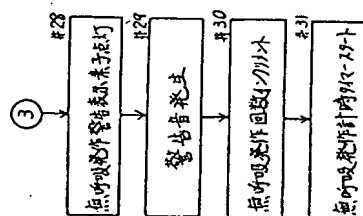 3
#28
無呼吸発作警告表示素子点灯
#29
警告音発生
#30
無呼吸発作回数インクリメント
#31
無呼吸発作計時タイマースタート